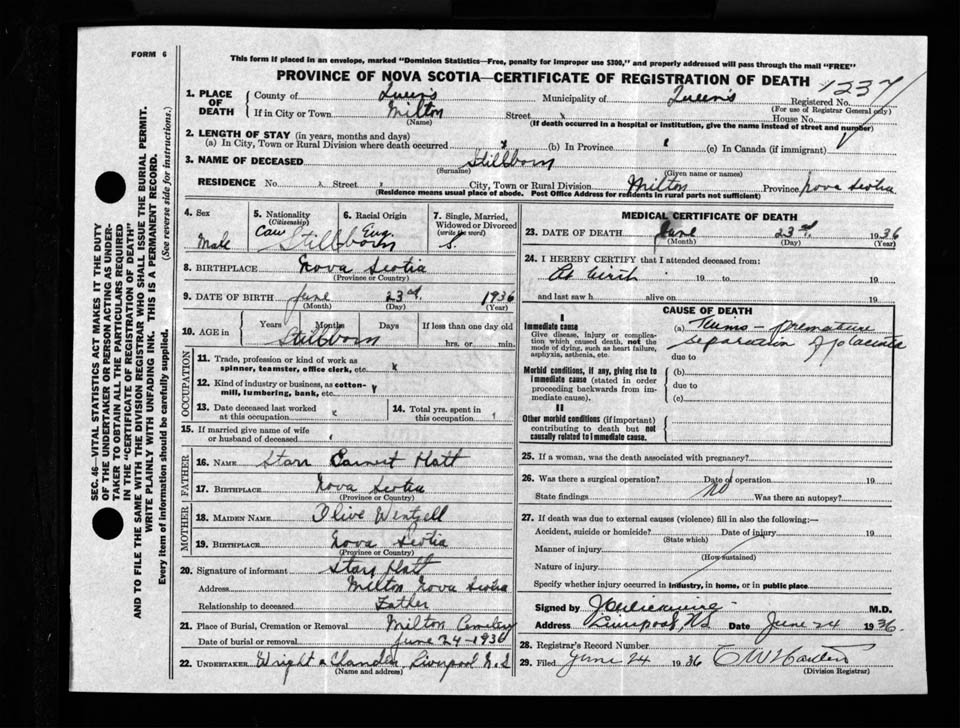 FORM 6
This form if placed in an envelope, marked "Dominion Statistics—Free, penalty for improper use $300," and properly addressed will pass through the mail "FREE"
PROVINCE OF NOVA SCOTIA—CERTIFICATE OF REGISTRATION OF DEATH
1237
1. PLACE OF DEATH
County of Queen's Municipality of Queen's Registered No.
(For use of Registrar General only)
If in City or Town Milton Street x House No.
(Name) (If death occurred in a hospital or institution, give the name instead of street and number)
2. LENGTH OF STAY (in years, months and days)
(a) In City, Town or Rural Division where death occurred x (b) In Province (c) In Canada (if immigrant)
3. NAME OF DECEASED Stillborn
(Surname) (Given name or names)
RESIDENCE No. x Street x City, Town or Rural Division Milton Province Nova Scotia
(Residence means usual place of abode. Post Office Address for residents in rural parts not sufficient)
4. Sex Male
5. Nationality (Citizenship) Can
6. Racial Origin Eng.
Stillborn
7. Single, Married, Widowed or Divorced (write the word) S
8. BIRTHPLACE Nova Scotia
(Province or Country)
9. DATE OF BIRTH June 23rd, 1936
(Month) (Day) (Year)
10. AGE in Years Months Days If less than one day old
Stillborn hrs. or min.
OCCUPATION
11. Trade, profession or kind of work as spinner, teamster, office clerk, etc. x
12. Kind of industry or business, as cotton-mill, lumbering, bank, etc.
13. Date deceased last worked at this occupation
14. Total yrs. spent in this occupation
15. If married give name of wife or husband of deceased
FATHER
16. NAME Starr Earnest Hatt
17. BIRTHPLACE Nova Scotia
(Province or Country)
MOTHER
18. MAIDEN NAME Olive Wentzell
19. BIRTHPLACE Nova Scotia
(Province or Country)
20. Signature of informant Starr Hatt
Address Milton Nova Scotia
Relationship to deceased Father
21. Place of Burial, Cremation or Removal Milton Cemetery
Date of burial or removal June 24-1936
22. UNDERTAKER Wright & Chandler, Liverpool N.S
(Name and address)
MEDICAL CERTIFICATE OF DEATH
23. DATE OF DEATH June 23rd, 1936
(Month) (Day) (Year)
24. I HEREBY CERTIFY that I attended deceased from:
At birth 19 to 19
and last saw h alive on 19
CAUSE OF DEATH
I
Immediate cause
Give disease, injury or complication which caused death, not the mode of dying, such as heart failure, asphyxia, asthenia, etc.
(a) Twins - premature
separation of placenta
due to
Morbid conditions, if any, giving rise to immediate cause (stated in order proceeding backwards from immediate cause).
(b)
due to
(c)
II
Other morbid conditions (if important) contributing to death but not causally related to immediate cause.
25. If a woman, was the death associated with pregnancy?
26. Was there a surgical operation? No Date of operation 19
State findings Was there an autopsy?
27. If death was due to external causes (violence) fill in also the following:—
Accident, suicide or homicide? Date of injury 19
(State which)
Manner of injury
(How sustained)
Nature of injury
Specify whether injury occurred in industry, in home, or in public place
Signed by M.D.
Address Liverpool, NS Date June 24 1936
28. Registrar's Record Number
29. Filed June 24 1936
(Division Registrar)
SEC. 46—VITAL STATISTICS ACT MAKES IT THE DUTY
OF THE UNDERTAKER OR PERSON ACTING AS UNDER-
TAKER TO OBTAIN ALL THE PARTICULARS REQUIRED
IN THE "CERTIFICATE OF REGISTRATION OF DEATH"
AND TO FILE THE SAME WITH THE DIVISION REGISTRAR WHO SHALL ISSUE THE BURIAL PERMIT.
WRITE PLAINLY WITH UNFADING INK. THIS IS A PERMANENT RECORD.
Every item of information should be carefully supplied. (See reverse side for instructions.)